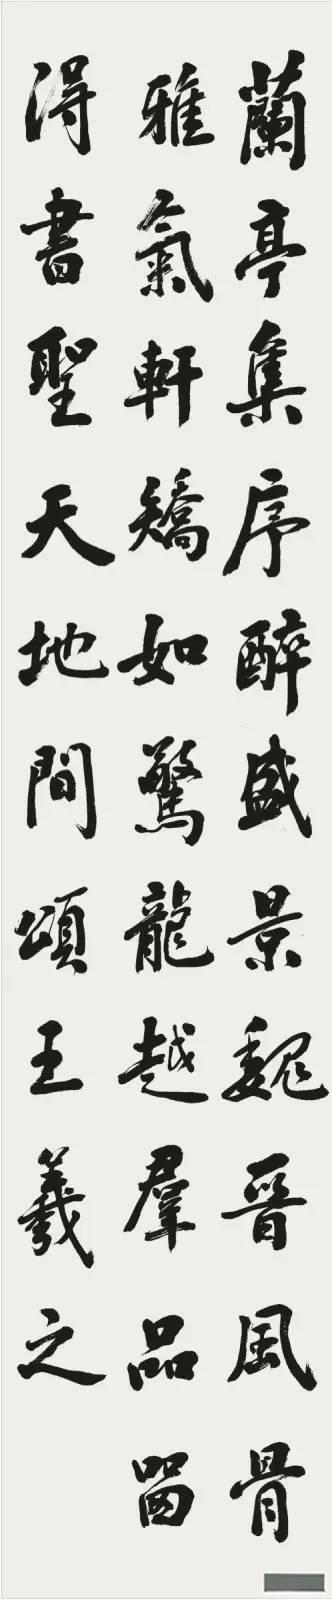 蘭亭集序醉盛景魏晉風骨
雅氣軒矯如驚龍越羣品留
得書聖天地間頌王羲之